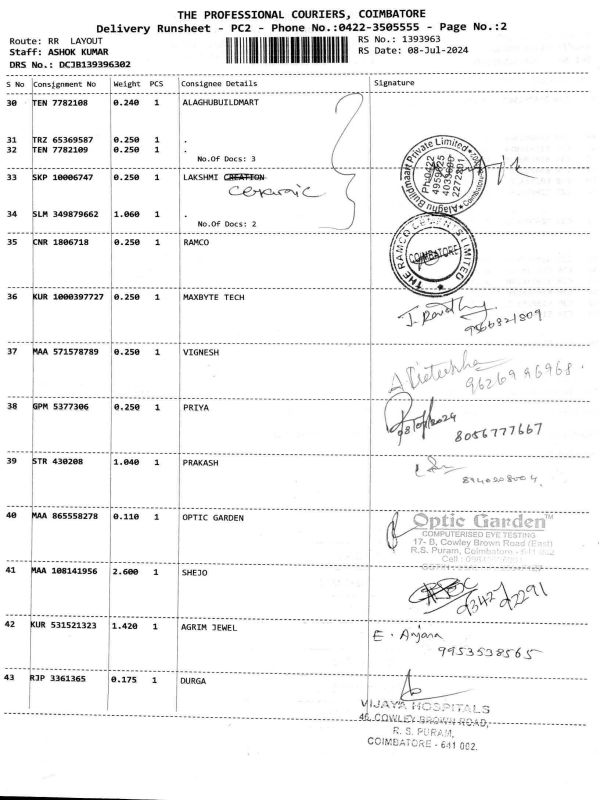 THE PROFESSIONAL COURIERS, COIMBATORE
Delivery Runsheet - PC2 - Phone No.:0422-3505555 - Page No.:2
Route: RR LAYOUT RS No.: 1393963
Staff: ASHOK KUMAR RS Date: 08-Jul-2024
DRS No.: DCJB139396302
S No Consignment No Weight PCS Consignee Details Signature
30 TEN 7782108 0.240 1 ALAGHUBUILDMART
31 TRZ 65369587 0.250 1 .
32 TEN 7782109 0.250 1 .
No.Of Docs: 3
Alaghu Buildmaart Private Limited
Coimbatore
Ph:0422
4959625
4033600
2272801
33 SKP 10006747 0.250 1 LAKSHMI CREATION
ceramic
34 SLM 349879662 1.060 1 .
No.Of Docs: 2
35 CNR 1806718 0.250 1 RAMCO
THE RAMCO CEMENTS LIMITED
COIMBATORE
36 KUR 1000397727 0.250 1 MAXBYTE TECH
9566821809
37 MAA 571578789 0.250 1 VIGNESH
96269 96968.
38 GPM 5377306 0.250 1 PRIYA
08/07/2024
8056777667
39 STR 430208 1.040 1 PRAKASH
8940208004.
40 MAA 865558278 0.110 1 OPTIC GARDEN
Optic Garden™
COMPUTERISED EYE TESTING
17- B, Cowley Brown Road (East)
R.S. Puram, Coimbatore - 641 002
Cell :
41 MAA 108141956 2.600 1 SHEJO
93427
92291
42 KUR 531521323 1.420 1 AGRIM JEWEL
E. Anjana
9953538565
43 RJP 3361365 0.175 1 DURGA
VIJAYA HOSPITALS
46, COWLEY BROWN ROAD,
R. S. PURAM,
COIMBATORE - 641 002.